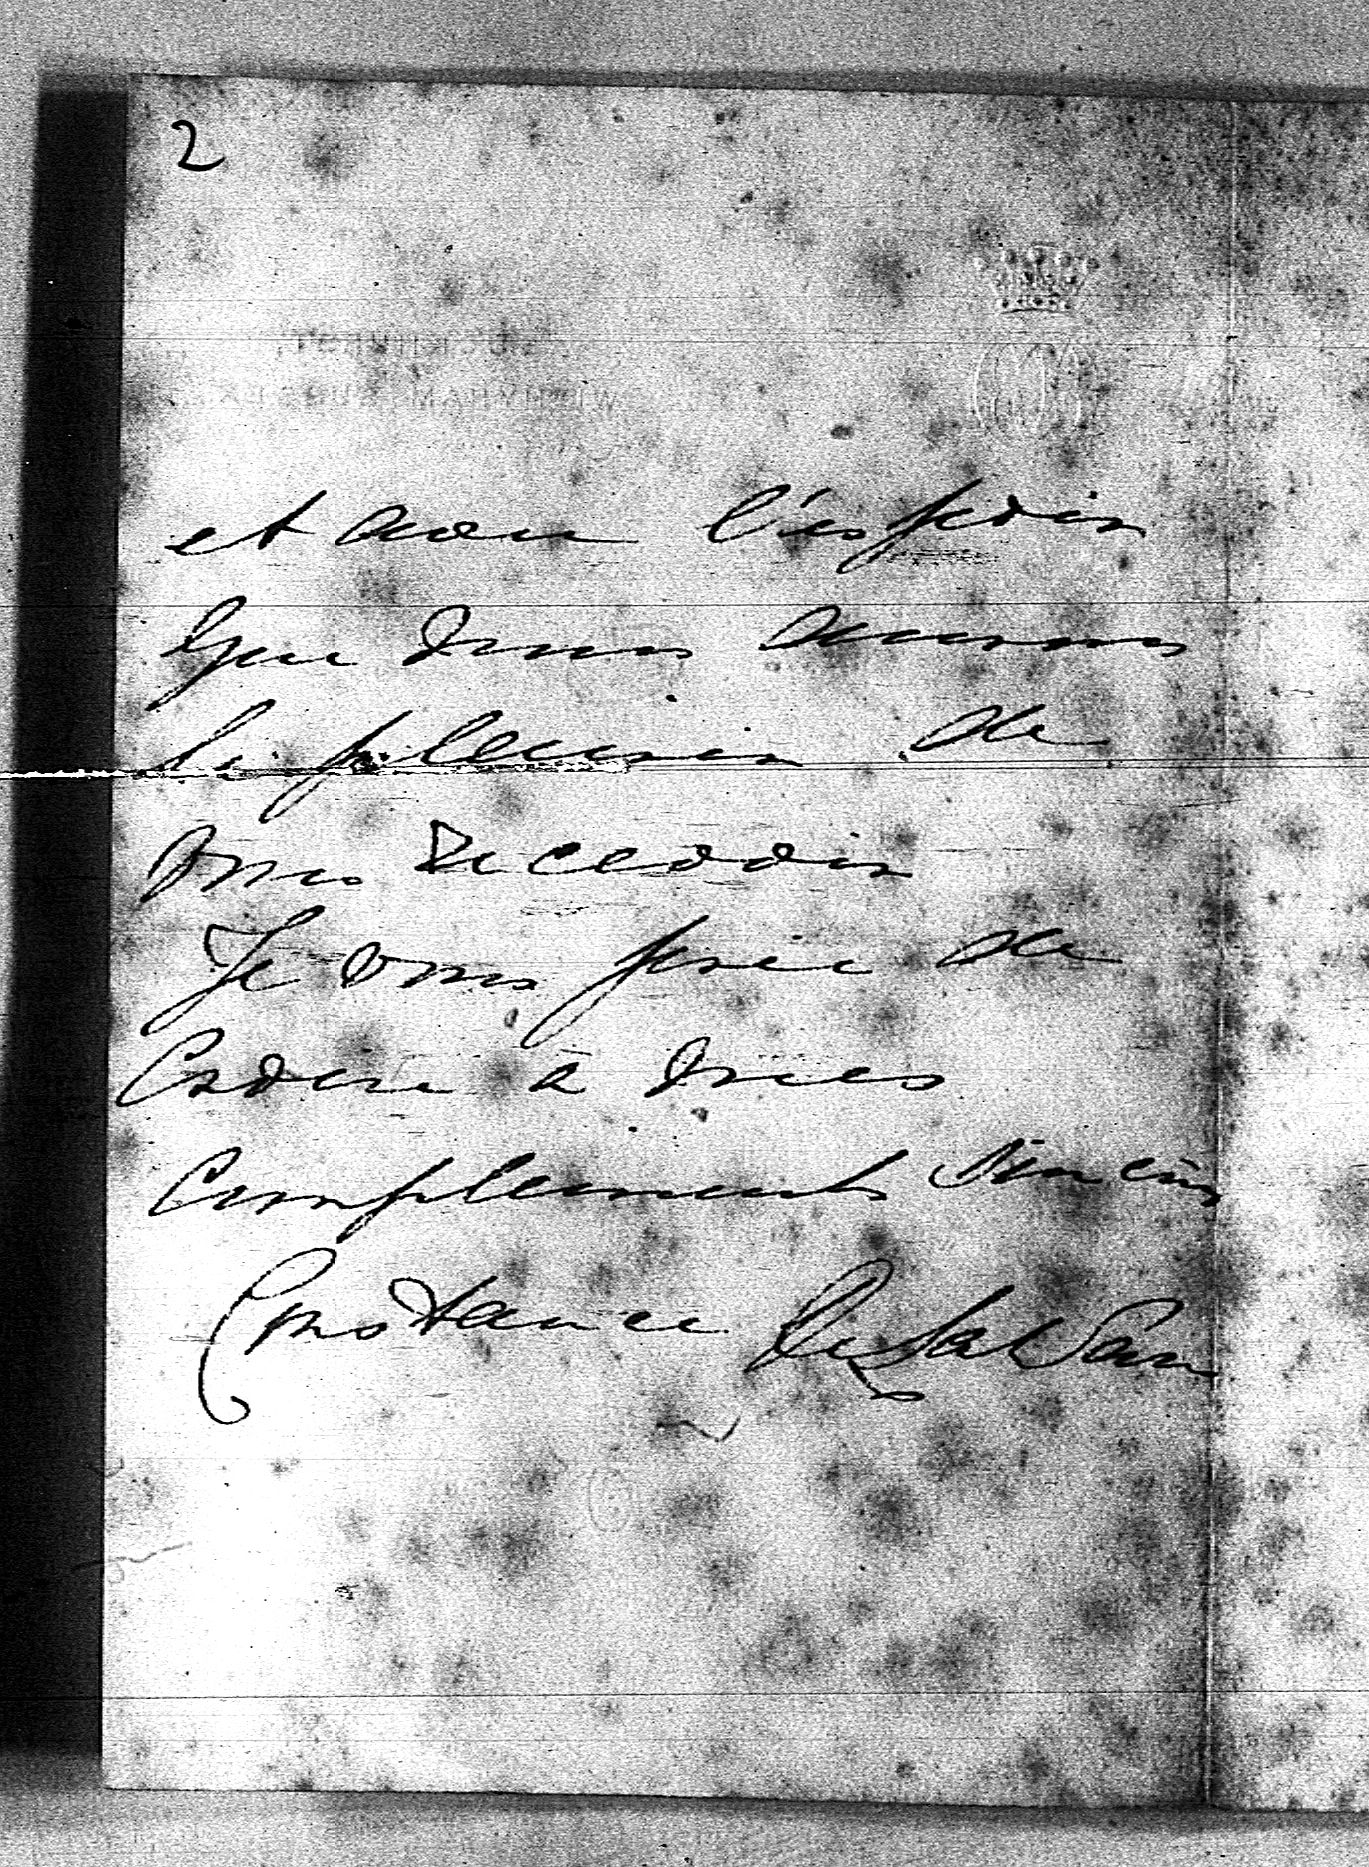 2
et avec l'espoir
que nous aurons
le plaisir de
vous recevoir
Je vous prie de
Croire à mes
Compliments sincères
Constance De La Warr